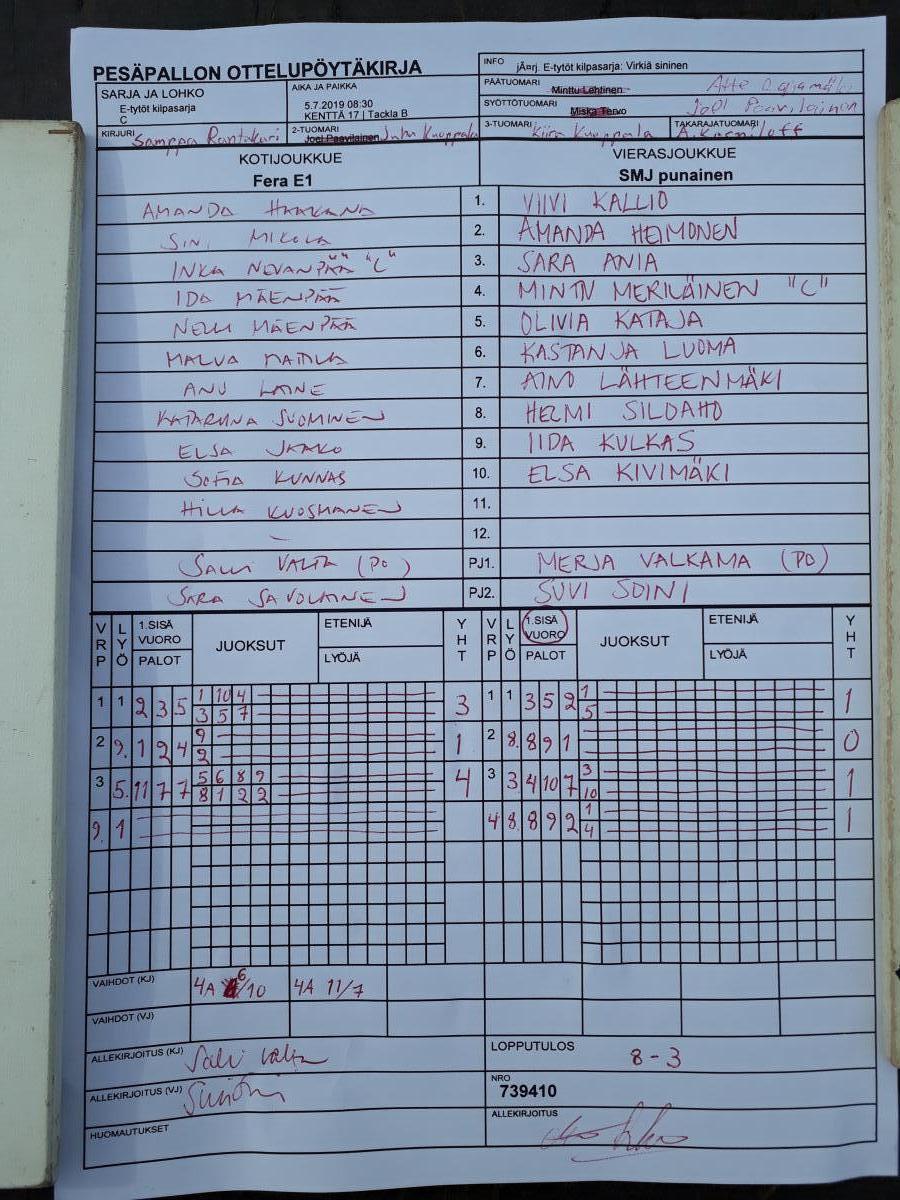 PESÄPALLON OTTELUPÖYTÄKIRJA
INFO jÃ¤rj. E-tytöt kilpasarja: Virkiä sininen
SARJA JA LOHKO
E-tytöt kilpasarja
C
AIKA JA PAIKKA
5.7.2019 08:30
KENTTÄ 17 | Tackla B
PÄÄTUOMARI Minttu Lehtinen Atte
SYÖTTÖTUOMARI Miska Tervo Joel Paavilainen
KIRJURI Samppa Rantakari
2-TUOMARI Joel Paavilainen Juha Kuoppala
3-TUOMARI Kiira Kuoppala
TAKARAJATUOMARI
KOTIJOUKKUE
Fera E1
VIERASJOUKKUE
SMJ punainen
AMANDA HAAKANA 1. VIIVI KALLIO
SINI MIKOLA 2. AMANDA HEIMONEN
INKA NEVANPÄÄ "C" 3. SARA ANIA
IDA MÄENPÄÄ 4. MINTU MERILÄINEN "C"
NELLI MÄENPÄÄ 5. OLIVIA KATAJA
MALVA MATTILA 6. KASTANJA LUOMA
ANU LAINE 7. AINO LÄHTEENMÄKI
KATARIINA SUOMINEN 8. HELMI SILOAHO
ELSA JAAKO 9. IIDA KULKAS
SOFIA KUNNAS 10. ELSA KIVIMÄKI
HILLA KUOSMANEN 11.
12.
SALLI VALTA (PO) PJ1. MERJA VALKAMA (PO)
SARA SAVOLAINEN PJ2. SUVI SOINI
VRP LYÖ 1.SISÄ VUORO PALOT JUOKSUT ETENIJÄ LYÖJÄ YHT VRP LYÖ 1.SISÄ VUORO PALOT JUOKSUT ETENIJÄ LYÖJÄ YHT
1 1 2 3 5 1 10 4 3 1 1 3 5 2 1 1
3 5 7 5
2 9. 1 2 4 9 1 2 8. 8 9 1 0
2
3 5. 11 7 7 5 6 8 9 4 3 3 4 10 7 3 1
8 1 2 2 10
9. 1 4 8. 8 9 2 1 1
4
VAIHDOT (KJ) 4A 6/10 4A 11/7
VAIHDOT (VJ)
ALLEKIRJOITUS (KJ) Salli Valta
LOPPUTULOS 8-3
ALLEKIRJOITUS (VJ)
NRO
739410
HUOMAUTUKSET
ALLEKIRJOITUS